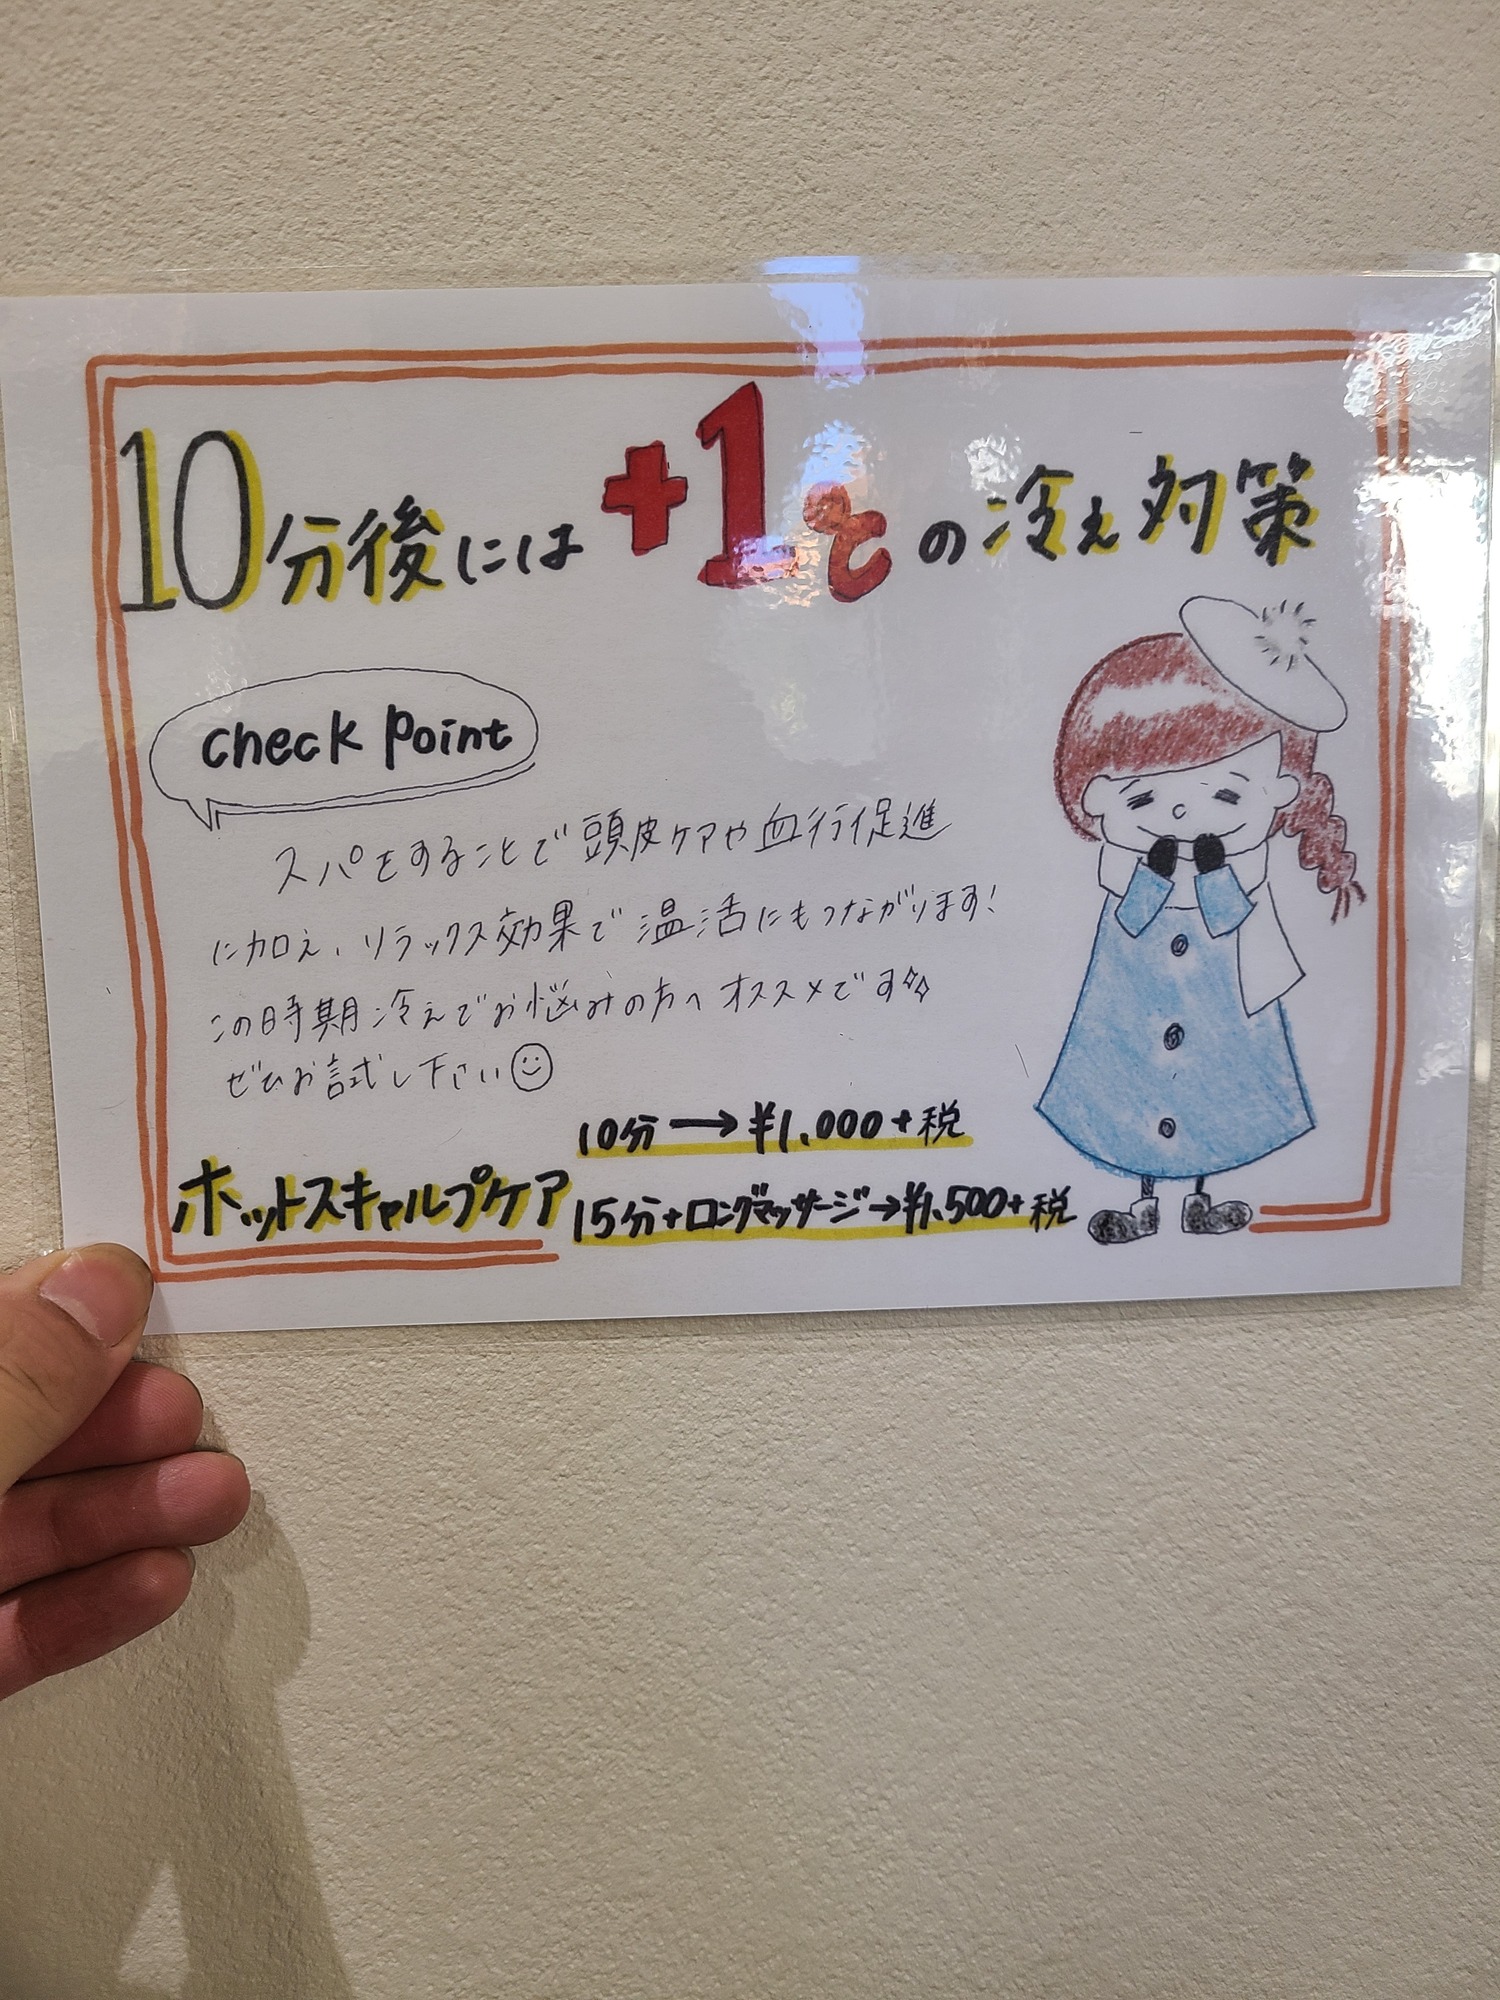 10分後には+1℃の冷え対策
check point
スパをすることで頭皮ケアや血行促進
に加え、リラックス効果で温活にもつながります！
この時期冷えでお悩みの方へオススメです
ぜひお試し下さい
10分→¥1,000+税
ホットスキャルプケア
15分+ロングマッサージ→¥1,500+税